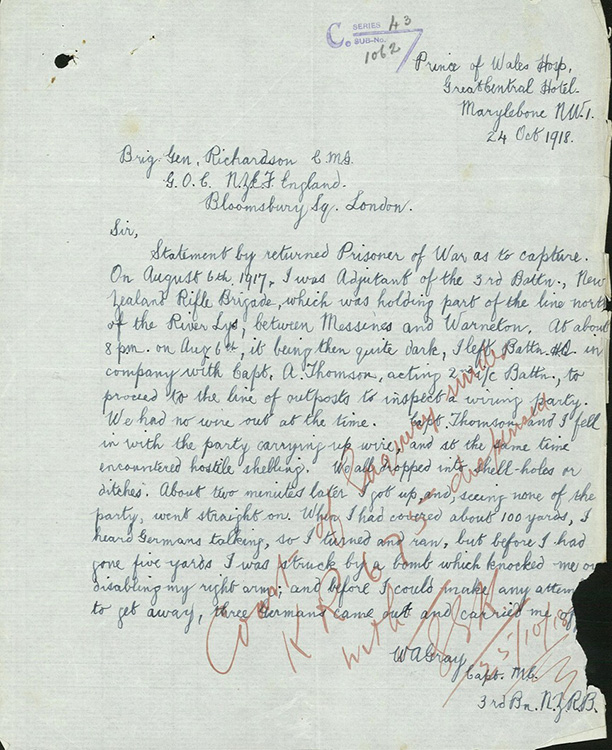 C. SERIES 43
SUB-No. 1062
Prince of Wales Hosp,
Great Central Hotel.
Marylebone N.W.1.
24 Oct 1918.
Brig. Gen. Richardson C.M.G.
G.O.C. N.Z.E.F. England.
Bloomsbury Sq. London.
Sir,
Statement by returned Prisoner of War as to capture.
On August 6th 1917, I was Adjutant of the 3rd Battn., New
Zealand Rifle Brigade, which was holding part of the line north
of the River Lys, between Messines and Warneton. At about
8 pm. on Aug 6th, it being then quite dark, I left Battn. H.Q. in
company with Capt. A. Thomson, acting 2nd i/c Battn., to
proceed to the line of outposts to inspect a wiring party.
We had no wire out at the time. Capt. Thomson and I fell
in with the party carrying up wire, and at the same time
encountered hostile shelling. We all dropped into shell-holes or
ditches. About two menutes later I got up, and, seeing none of the
party, went straight on. When I had covered about 100 yards, I
heard Germans talking, so I turned and ran, but before I had
gone five yards I was struck by a bomb which knocked me ov
disabling my right arm; and before I could make any attem
to get away, three Germans came out and carried me off.
W A Gray
Capt. M.C.
3rd Bn. N.Z.R.B.
Court of Enquiry under
K R 675 dispensed
with
25/10/18